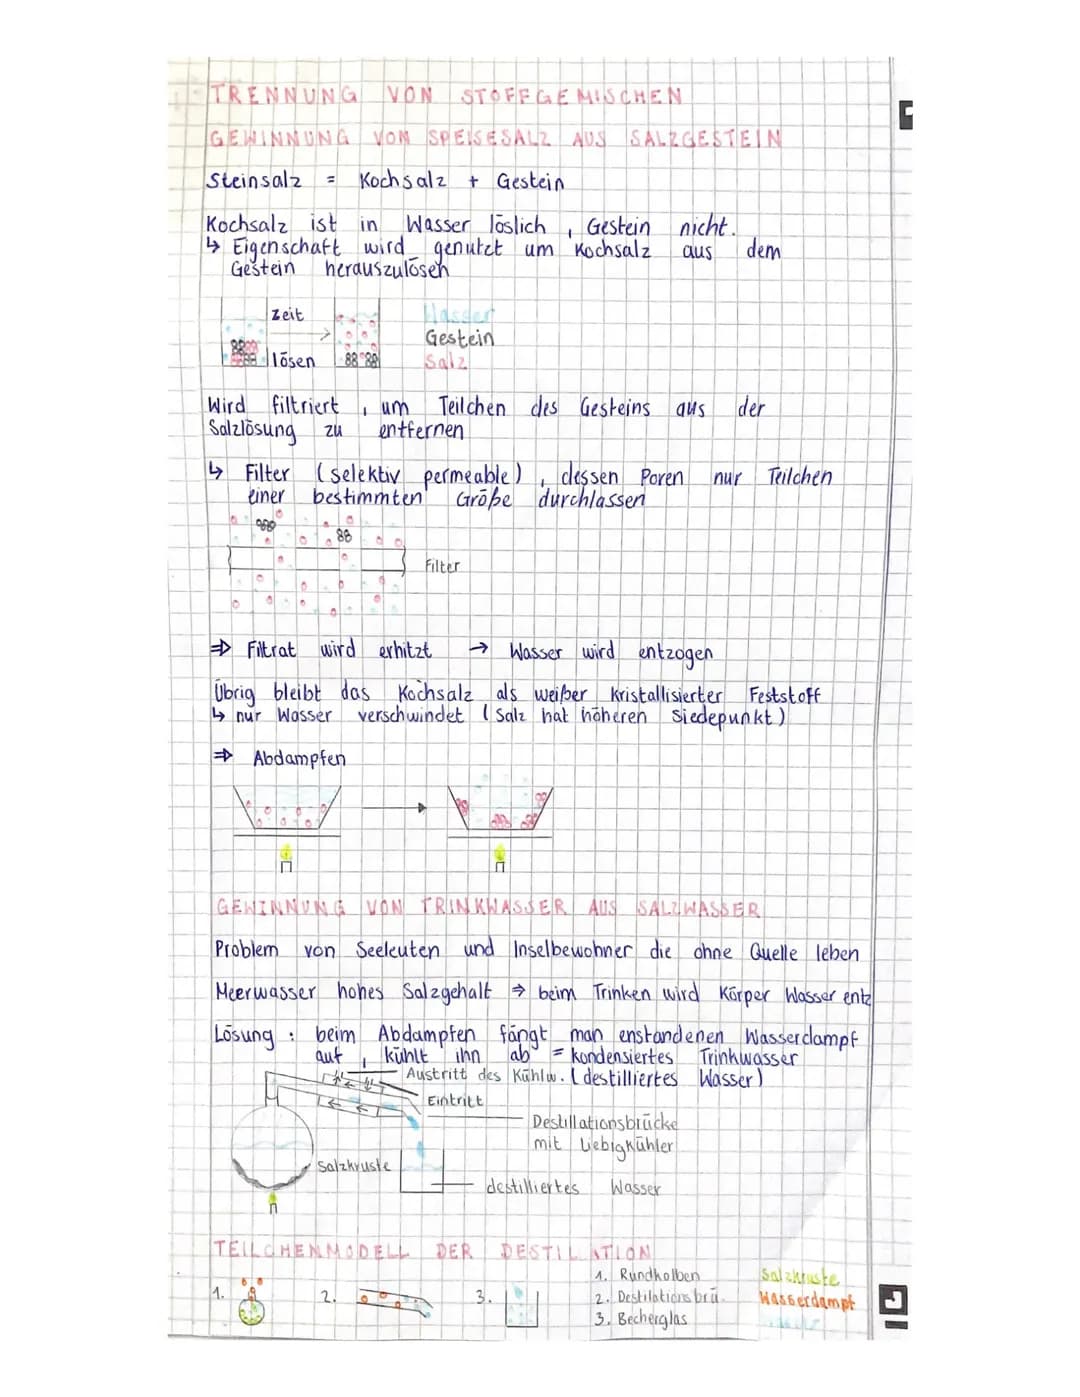 TRENNUNG VON STOFFGEMISCHEN
GEWINNUNG VON SPEISESALZ AUS SALZGESTEIN
Steinsalz = Kochsalz + Gestein
Kochsalz ist in Wasser löslich, Gestein nicht.
↳ Eigenschaft wird genutzt um Kochsalz aus dem
Gestein herauszulösen
Zeit
lösen
Wasser
Gestein
Salz
Wird filtriert, um Teilchen des Gesteins aus der
Salzlösung zu entfernen
↳ Filter (selektiv permeable), dessen Poren nur Teilchen
einer bestimmten Größe durchlassen
Filter
⇒ Filtrat wird erhitzt → Wasser wird entzogen
Übrig bleibt das Kochsalz als weißer kristallisierter Feststoff
↳ nur Wasser verschwindet (Salz hat höheren Siedepunkt)
⇒ Abdampfen
GEWINNUNG VON TRINKWASSER AUS SALZWASSER
Problem von Seeleuten und Inselbewohner die ohne Quelle leben
Meerwasser hohes Salzgehalt ⇒ beim Trinken wird Körper Wasser entz
Lösung: beim Abdampfen fängt man enstandenen Wasserdampf
auf, kühlt ihn ab = kondensiertes Trinkwasser
Austritt des Kühlw. (destilliertes Wasser)
Eintritt
Destillationsbrücke
mit Liebigkühler
Salzkruste
destilliertes Wasser
TEILCHENMODELL DER DESTILATION
1. 2. 3.
1. Rundkolben
2. Destilationsbrü.
3. Becherglas
Salzkruste
Wasserdampf